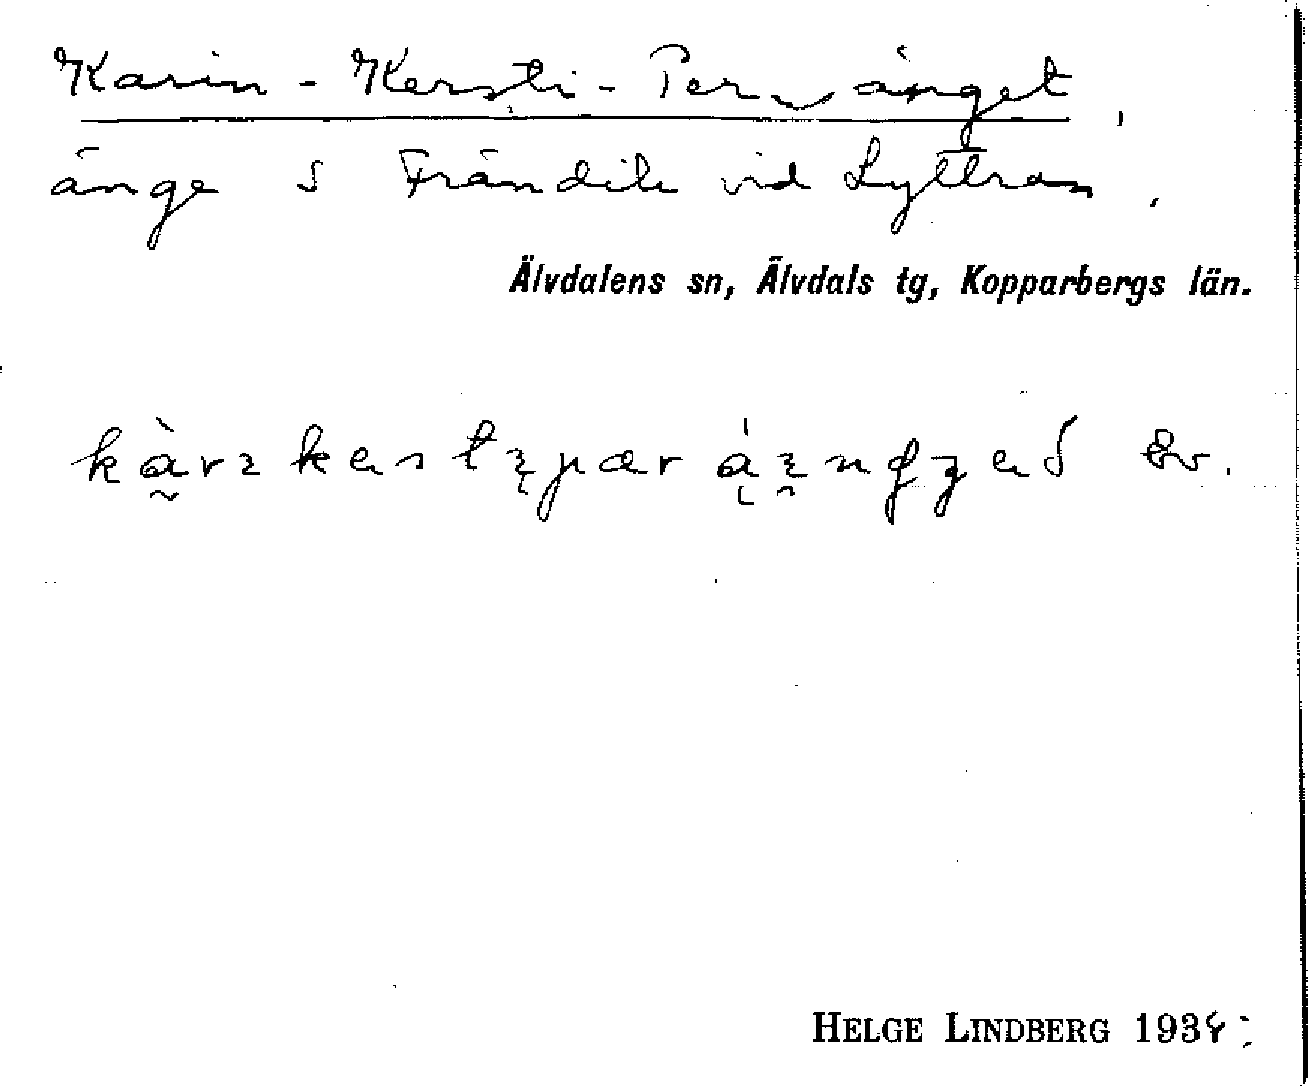 Karin-Kersti-Per änget,
änge S Frändik vid Lyttran.
Älvdalens sn, Älvdals tg, Kopparbergs län.
Ev.
HELGE LINDBERG 1934